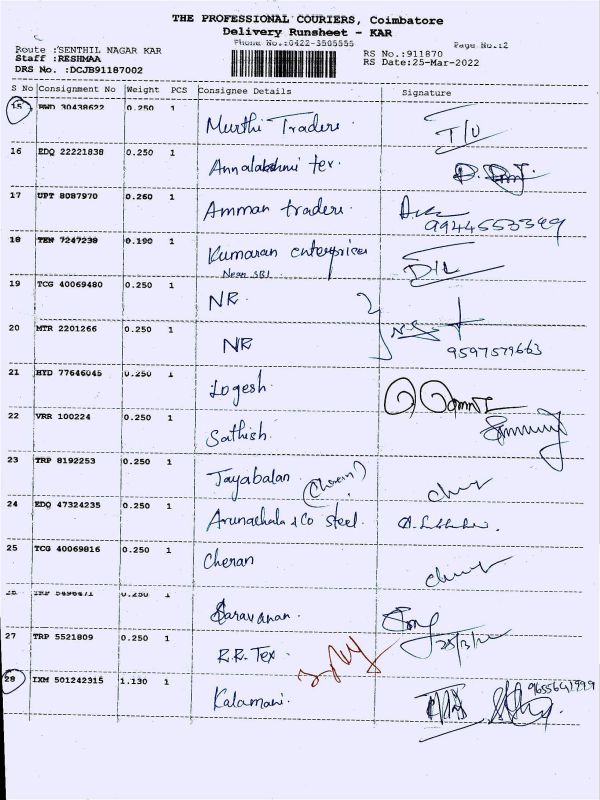 THE PROFESSIONAL COURIERS, Coimbatore
Delivery Runsheet - KAR
Phone No.:0422-3505555
Page No.:2
Route :SENTHIL NAGAR KAR
RS No.:911870
Staff :RESHMAA
RS Date:25-Mar-2022
DRS No. :DCJB91187002
S No Consignment No Weight PCS Consignee Details Signature
15 PWD 30438622 0.250 1 Murthi Traders. T/U
16 EDQ 22221838 0.250 1 Annalakshmi tex.
17 UPT 8087970 0.260 1 Amman traders.
18 TEN 7247239 0.190 1 Kumaran enterprices D/L
Near SBI.
19 TCG 40069480 0.250 1 NR
20 MTR 2201266 0.250 1 NR 9597579663
21 HYD 77646045 0.250 1 Logesh.
22 VRR 100224 0.250 1 Sathish.
23 TRP 8192253 0.250 1 Jayabalan (Cheran)
24 EDQ 47324235 0.250 1 Arunachala & Co steel.
25 TCG 40069816 0.250 1 Cheran
26 TRP 5496471 0.250 1 Saravanan.
27 TRP 5521809 0.250 1 R.R. Tex 25/3/22
28 IXM 501242315 1.130 1 Kalamani.